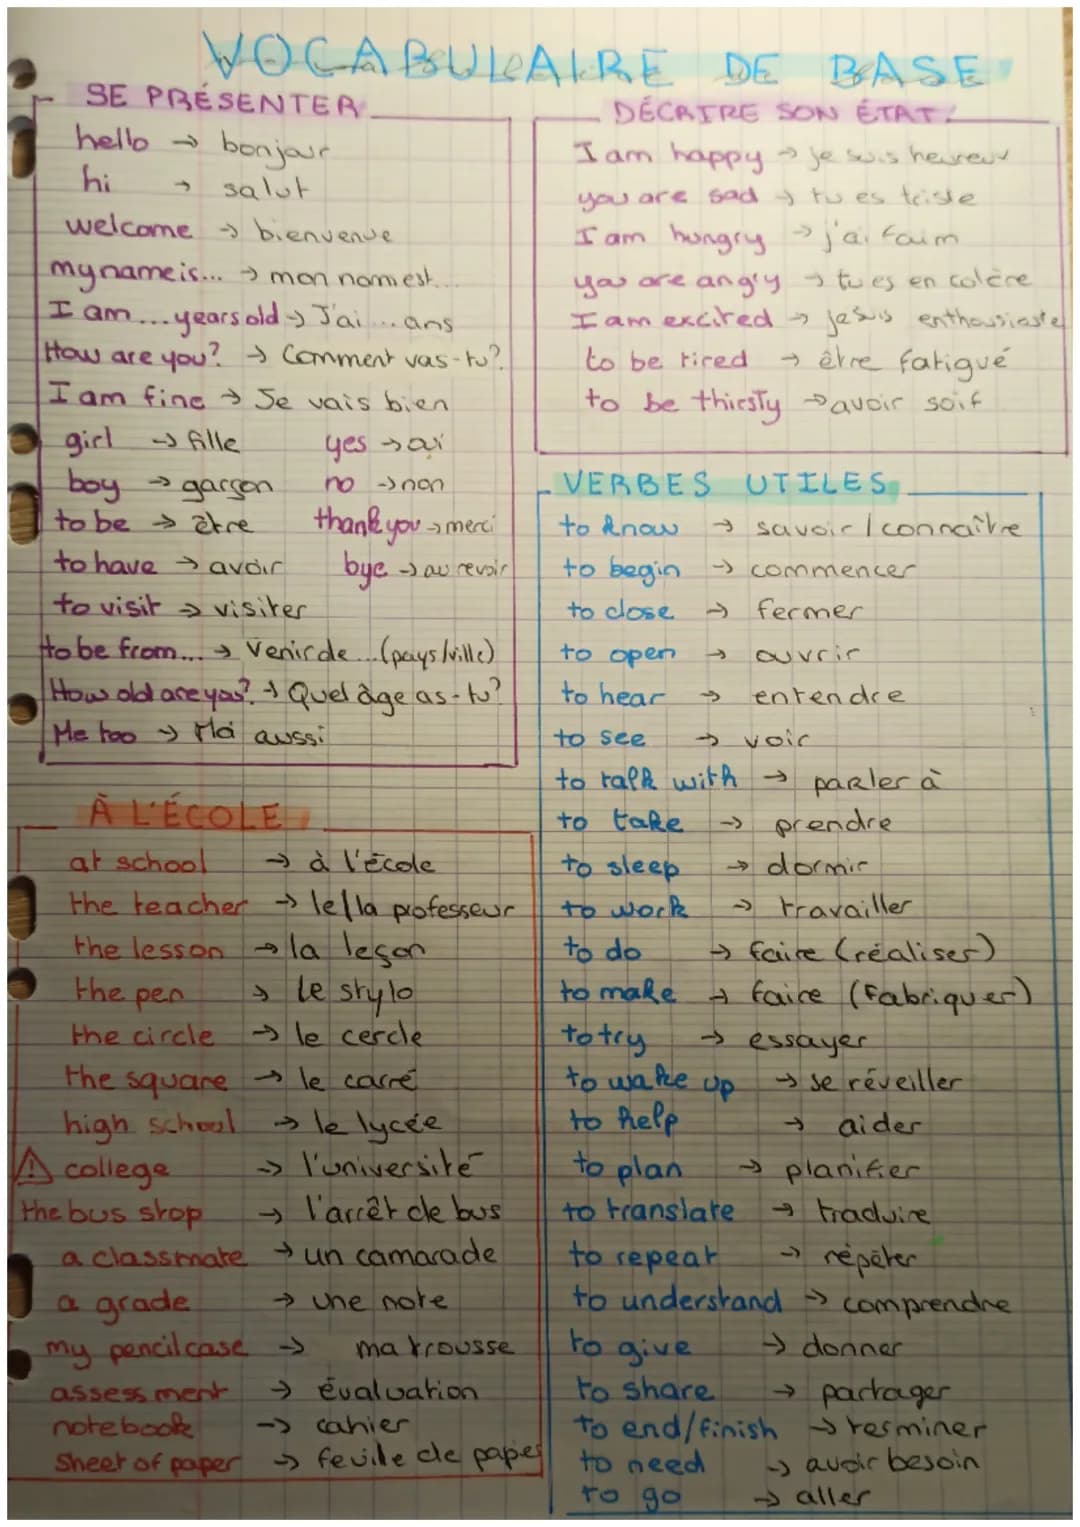 VOCABULAIRE DE BASE
SE PRÉSENTER
hello → bonjour
hi → salut
welcome → bienvenue
my name is... → mon nom est...
I am...years old → J'ai ... ans
How are you? → Comment vas-tu?
I am fine → Je vais bien
girl → fille yes → oui
boy → garçon no → non
to be → être thank you → merci
to have → avoir bye → au revoir
to visit → visiter
to be from... → Venir de ...(pays/ville)
How old are you? → Quel âge as-tu?
Me too → Moi aussi
À L'ÉCOLE
at school → à l'école
the teacher → le/la professeur
the lesson → la leçon
the pen → le stylo
the circle → le cercle
the square → le carré
high school → le lycée
⚠ college → l'université
the bus stop → l'arrêt de bus
a classmate → un camarade
a grade → une note
my pencil case → ma trousse
assessment → évaluation
notebook → cahier
sheet of paper → feuille de papier
DÉCRIRE SON ÉTAT
I am happy → je suis heureux
you are sad → tu es triste
I am hungry → j'ai faim
you are angry → tu es en colère
I am excited → je suis enthousiaste
to be tired → être fatigué
to be thirsty → avoir soif
VERBES UTILES
to know → savoir / connaître
to begin → commencer
to close → fermer
to open → ouvrir
to hear → entendre
to see → voir
to talk with → parler à
to take → prendre
to sleep → dormir
to work → travailler
to do → faire (réaliser)
to make → faire (fabriquer)
to try → essayer
to wake up → se réveiller
to help → aider
to plan → planifier
to translate → traduire
to repeat → répéter
to understand → comprendre
to give → donner
to share → partager
to end/finish → terminer
to need → avoir besoin
to go → aller